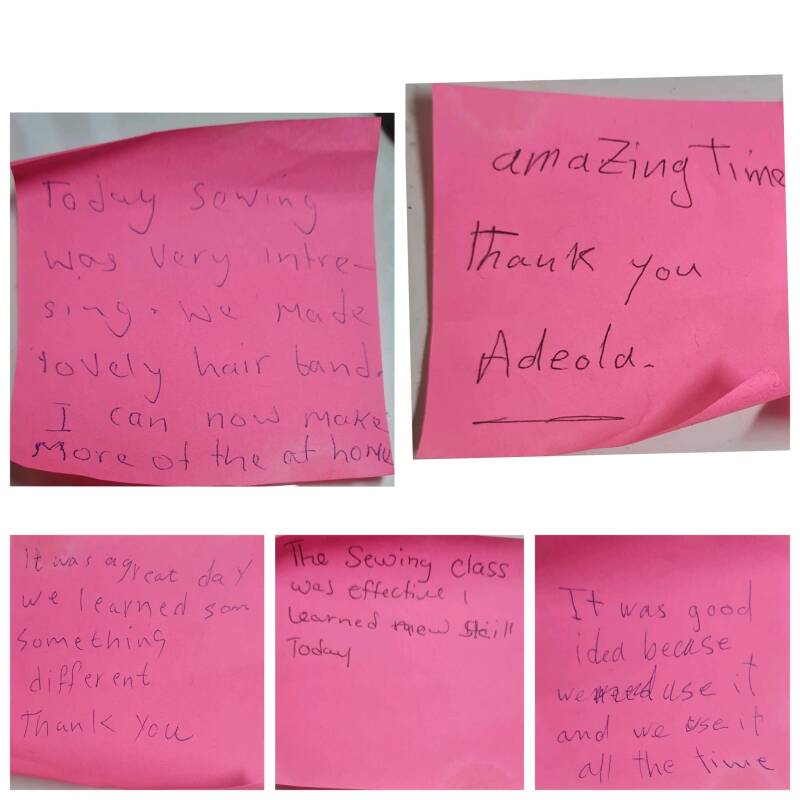 Today sewing
was very intre-
sing. we made
lovely hair band.
I can now make
More of the at home
amaZing Time
Thank you
Adeola.
It was a great day
we learned som
something
different
Thank You
The Sewing class
was effective I
Learned new skill
Today
It was good
idea becuse
we use it
and we use it
all the time